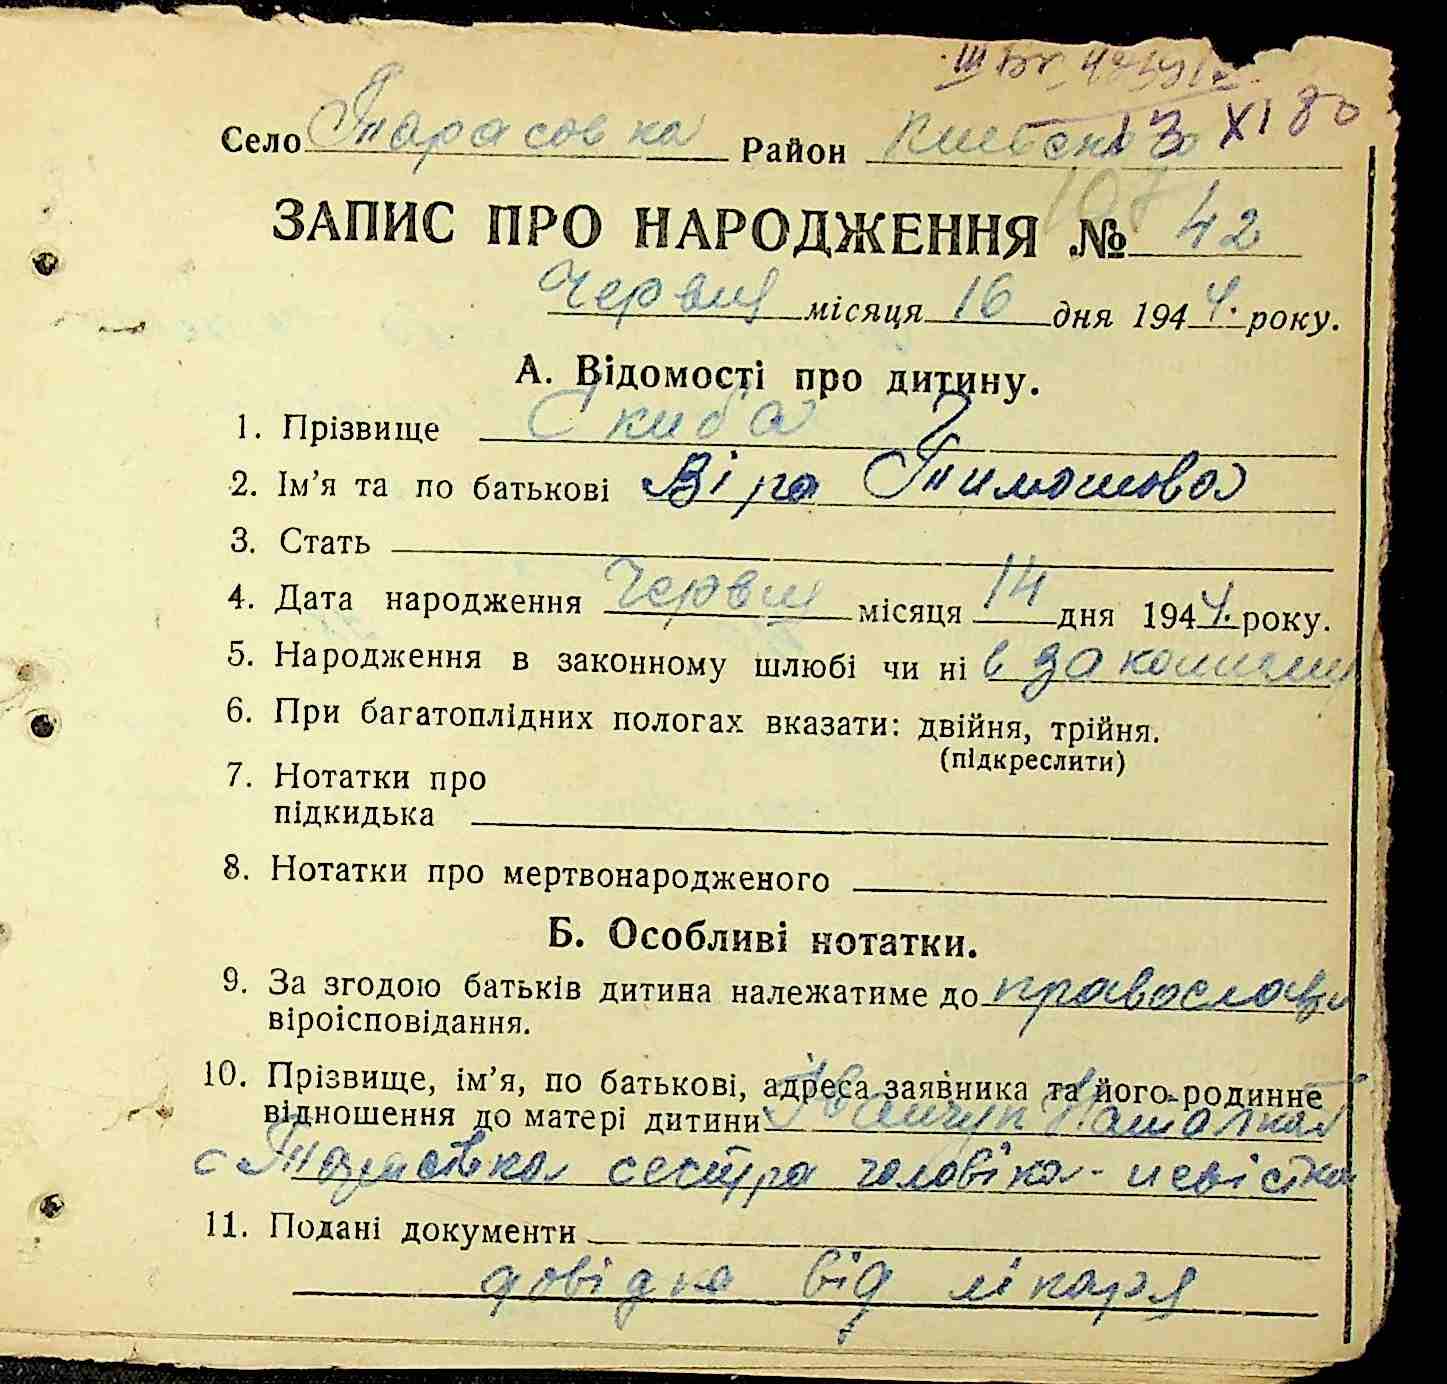 13 XI 80
Село Тарасовка Район Киевского
ЗАПИС ПРО НАРОДЖЕННЯ № 42
Червця місяця 16 дня 1944. року.
А. Відомості про дитину.
1. Прізвище Скиба
2. Ім’я та по батькові Віра Тимошова
3. Стать
4. Дата народження Червця місяця 14 дня 1944. року.
5. Народження в законному шлюбі чи ні в законному
6. При багатоплідних пологах вказати: двійня, трійня.
(підкреслити)
7. Нотатки про
підкидька
8. Нотатки про мертвонародженого
Б. Особливі нотатки.
9. За згодою батьків дитина належатиме до православн
віроісповідання.
10. Прізвище, ім’я, по батькові, адреса заявника та його родинне
відношення до матері дитини Іванчук Наталка
с Тарасовка сестра чоловіка - невістка
11. Подані документи
довідка від лікаря